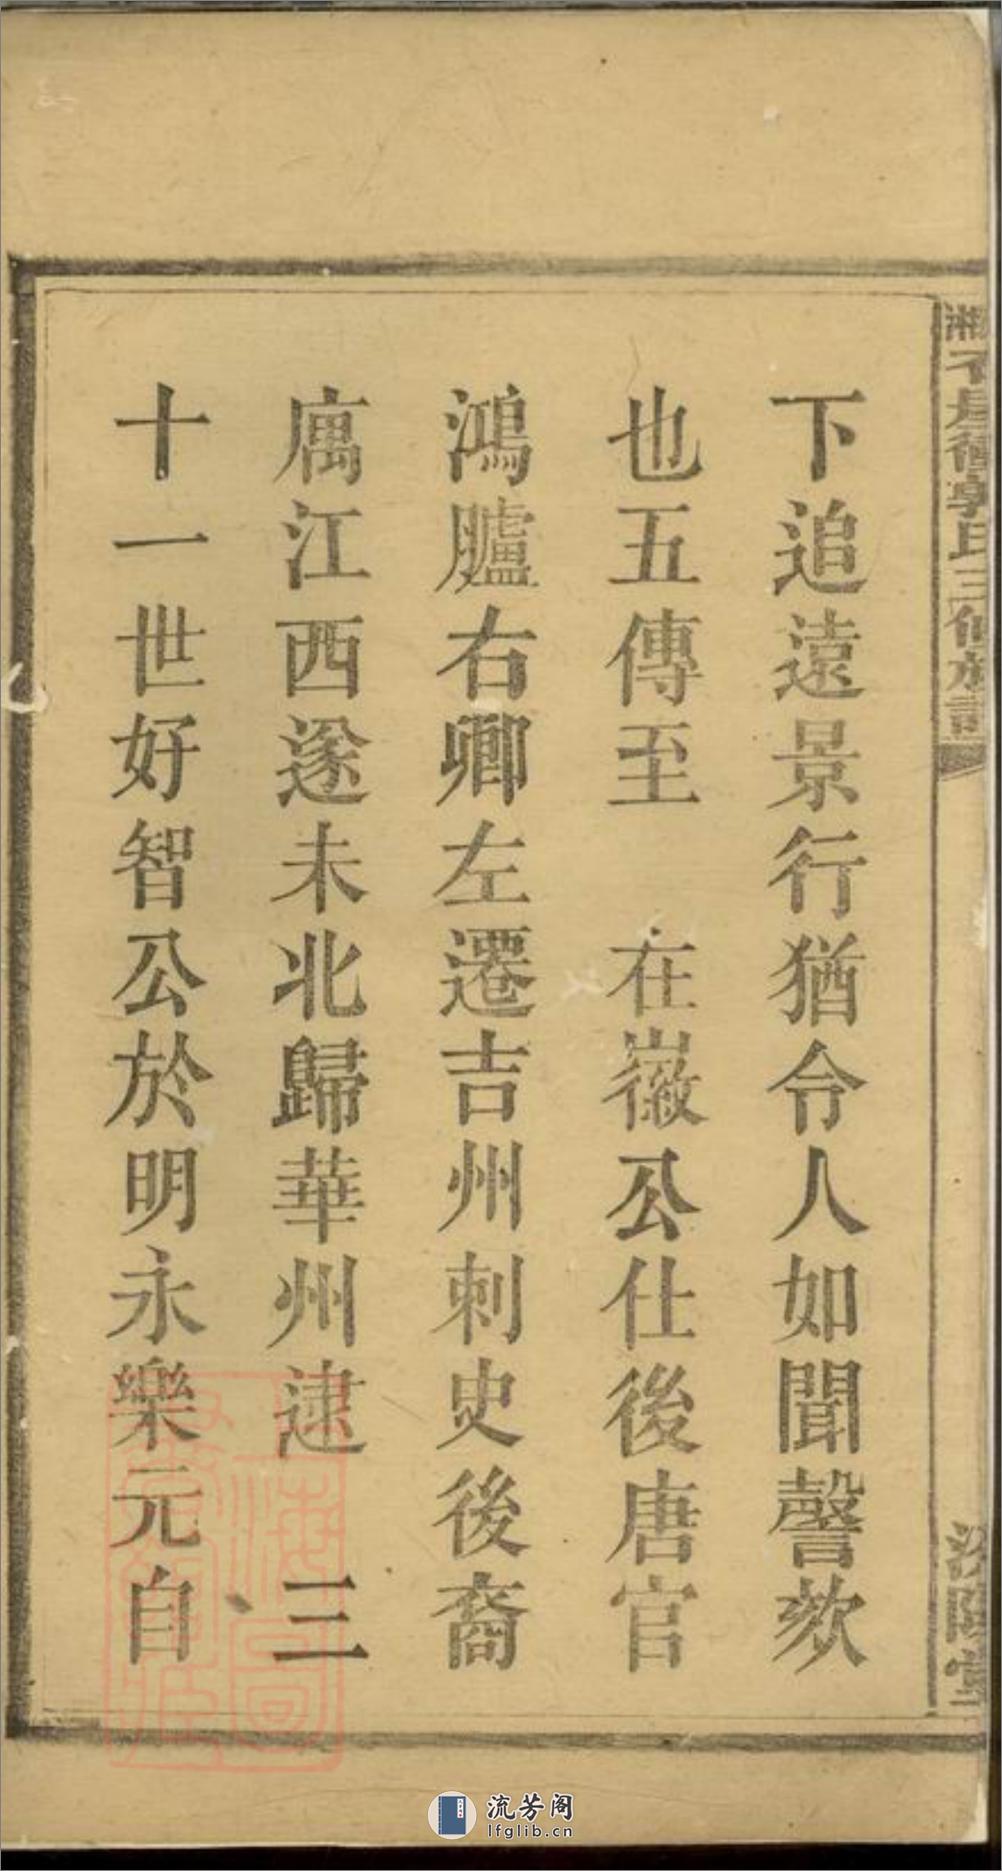 下追遠景行猶令人如聞謦欬
也五傳至 在徽公仕後唐官
鴻臚右卿左遷吉州刺史後裔
寓江西遂未北歸華州逮 三
十一世好智公於明永樂元自
流芳阁
lfglib.cn